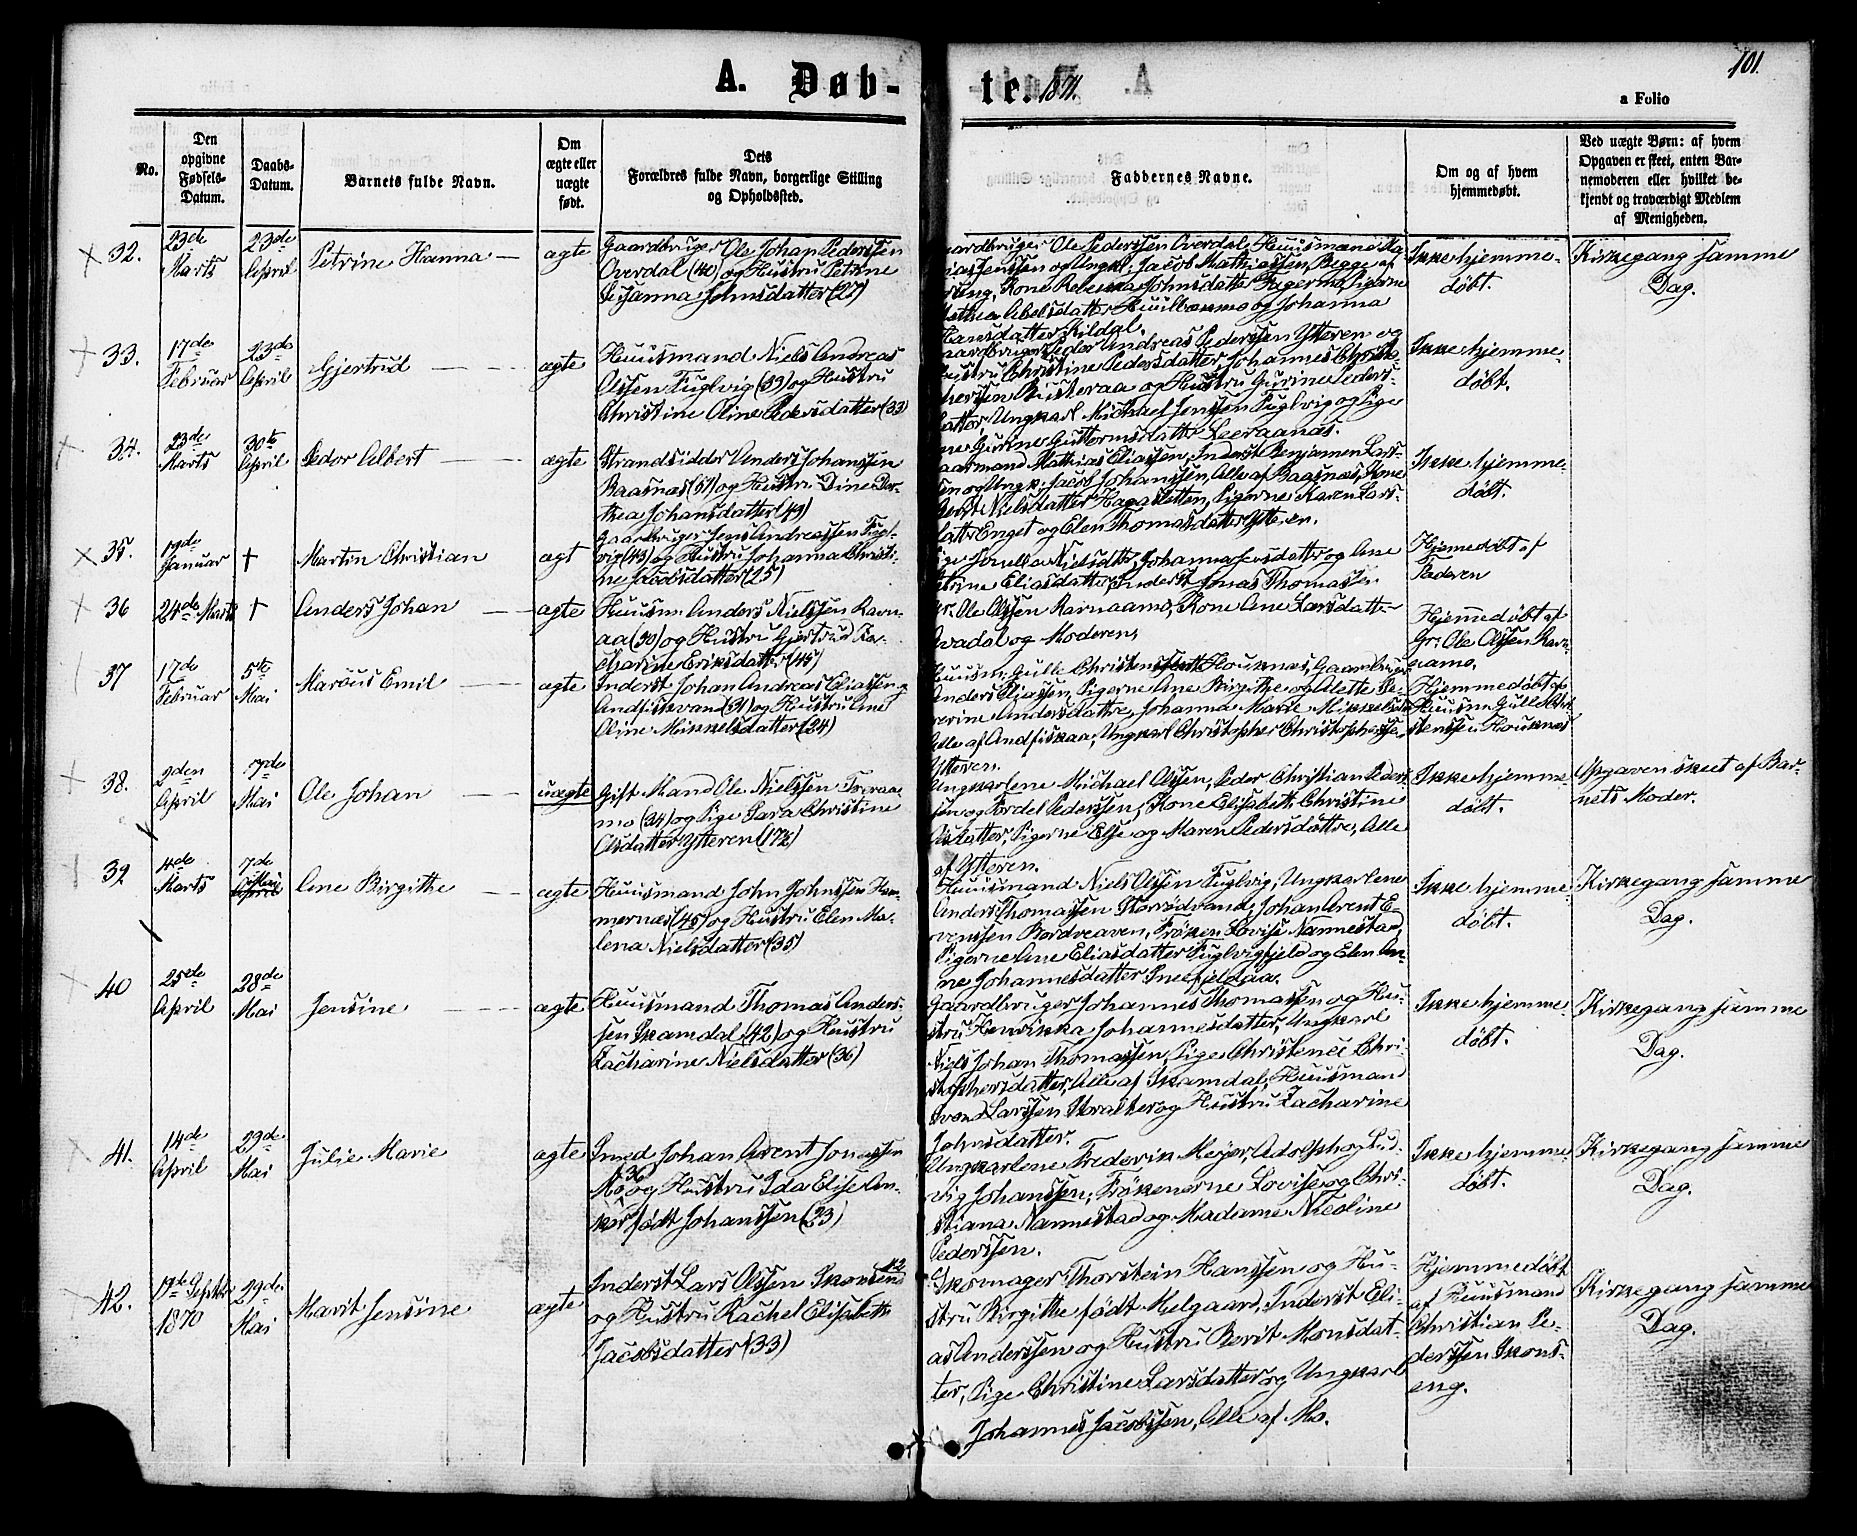 101.
A. Døb-
te. 1871.
a Folio
No.
Den
opgivne
Fødsels-
Datum.
Daabs-
Datum.
Barnets fulde Navn.
Om
ægte eller
uægte
født.
Dets
Forældres fulde Navn, borgerlige Stilling
og Opholdssted.
Faddernes Navne.
Om og af hvem
hjemmedøbt.
Ved uægte Børn: af hvem
Opgaven er skeet, enten Bar-
nemoderen eller hvilket be-
kjendt og troværdigt Medlem
af Menigheden.
32.
23de
Marts
23de
April
Petrine Hanna
ægte
Gaardbruger Ole Johan Pederssen
Overdal (40) og Hustru Petrine
Susanna Johnsdatter (27)
aardbruger Ole Pederssen Overdal, Huusmand
Jenssen og Ungk. Jacob Mathiassen, Begge af
Kone Rebekka Johnsdatter Fagermo, Pigerne
Abelsdatter og Johanna
Hansdatter Kildal.
Ikke hjemme-
døbt.
Kirkegang samme
Dag.
33.
17de
Februar
23de
April
Gjertrud
ægte
Huusmand Niels Andreas
Olssen Fuglvig (39) og Hustru
Christine Oline Pedersdatter (33)
aardbruger Peder Andreas Pederssen Ytteren og
ustru Christine Pedersdatter, Johannes Christo-
pherssen og Hustru Gurine Peders-
datter, Ungkarl Michael Jenssen Fuglvig og Pige
Gurine Guttormsdatter Leeraanæs.
Ikke hjemme-
døbt.
34.
23de
Marts
30te
April
Peder Albert
ægte
Strandsidder Anders Johanssen
Baasnæs (51) og Hustru Dine Dor-
thea Johansdatter (43)
aarmand Mathias Eliassen, Inderst Benjamin Lars-
sen og Ungk. Jacob Johanssen, Alle af Baasnæs, Kone
Nielsdatter Hagasletten, Pigerne Karen Lars-
datter Enget og Elen Thomasdatter Ytteren.
Ikke hjemme-
døbt.
35.
19de
Januar
†
Martin Christian
ægt
Gaardbruger Jens Andreassen Fugl-
vig (43) og Hustru Johanna Christi-
ne Jacobsdatter (25)
Pige Nielsdtr, Johanna Jensdatter og Ane
Eliasdatter, Inderst Jonas Thomassen
Hjemmedøbt af
Faderen
36
24de Marts
†
Anders Johan
ægte
Huusm. Anders Nielssen Ravn-
aa (30) og Hustru Gjertrud Ka-
tharine Eriksdatter (45)
Gr. Ole Olssen Ravnaamo, Kone Ane Larsdatter
og Moderen.
Hjemmedøbt af
Gr. Ole Olssen Ravn-
aamo.
37
17de
Februar
5te
Mai
Marcus Emil
ægte
Inderst Johan Andreas Eliassen
Andfiskvand (31) og Hustru Ane
Oline Mikkelsdatter (24)
Huusm. Gulle Christenssen Houknæs, Gaardbruger
Anders Eliassen, Pigerne Ane Birgithe og Alette Se-
verine Andersdøttre, Johanna Marie Mikkelsdtr
Alle af Andfiskaa, Ungkarl Christopher Christopherssen,
Ytteren.
Hjemmedøbt af
Huusm. Gulle Chri-
stenssen Houknæs
38.
2den
April
7de
Mai
Ole Johan
uægte
Gift Mand Ole Nielssen Traraa-
mo (34) og Pige Sara Christine
Olsdatter Ytteren (17½)
Ungkarlene Michael Olssen, Peder Christian Peders-
sen og Fordel Pederssen, Kone Elisabeth Christine
Olsdatter, Pigerne Else og Maren Pedersdøttre, Alle
af Ytteren.
Ikke hjemme
døbt.
Opgaven skeet af Bar-
nets Moder.
39
4de
Marts
7de
Mai
April
Ane Birgithe
ægte
Huusmand John Johnssen Ham-
mernæs (45) og Hustru Elen Ma-
lena Nielsdatter (35)
Huusmand Niels Olssen Fuglvig, Ungkarlene
Anders Thomassen Storrødvand, Johan Arent E-
venssen Bordveaven, Frøken Lovise Nannestad,
Pigerne Ane Eliasdatter Fuglvigfjeld og Elen An-
ne Johannesdatter Sneefjeldaa.
Ikke hjemme
døbt.
Kirkegang samme
Dag.
40
25de
April
28de
Mai
Jensine
ægte
Huusmand Thomas Anders-
sen Skamdal (42) og Hustru
Zacharine Nielsdatter (36)
Gaardbruger Johannes Thomassen og Hu-
stru Henrikka Johannesdatter, Ungkarl
Niels Johan Thomassen, Pige Christence Chri-
stophersdatter, Alle af Skamdal, Huusmand
Svend Larssen og Hustru Zacharine
Johnsdatter.
Ikke hjemme
døbt.
Kirkegang samme
Dag.
41.
14de
April
29de
Mai
Julie Marie
ægte
Smed Johan Arent Jonassen
Mo 36 og Hustru Ida Elise An-
ker født Johanssen (23)
Ungkarlene Frederik Meyer, Adolph og Lud-
vig Johanssen, Frøkenerne Lovise og Chri-
stiana Nannestad og Madame Nicoline
Pederssen.
Ikke hjemme
døbt.
Kirkegang samme
Dag.
42.
19de Septbr
1870
29de
Mai
Marit Jensine
ægte
Inderst Lars Olssen Skonseng 42
og Hustru Rachel Elisabeth
Jacobsdatter (33)
Skomager Thorstein Hanssen og Hu-
stru Birgithe født Melgaard, Inderst Eli-
as Anderssen og Hustru Berit Monsdat-
ter, Pige Christine Larsdatter og Ungkarl
Johannes Jacobssen, Alle af Mo.
Hjemmedøbt
af Huusmand
Christian Pe-
derssen Skons-
eng.
Kirkegang samme
Dag.